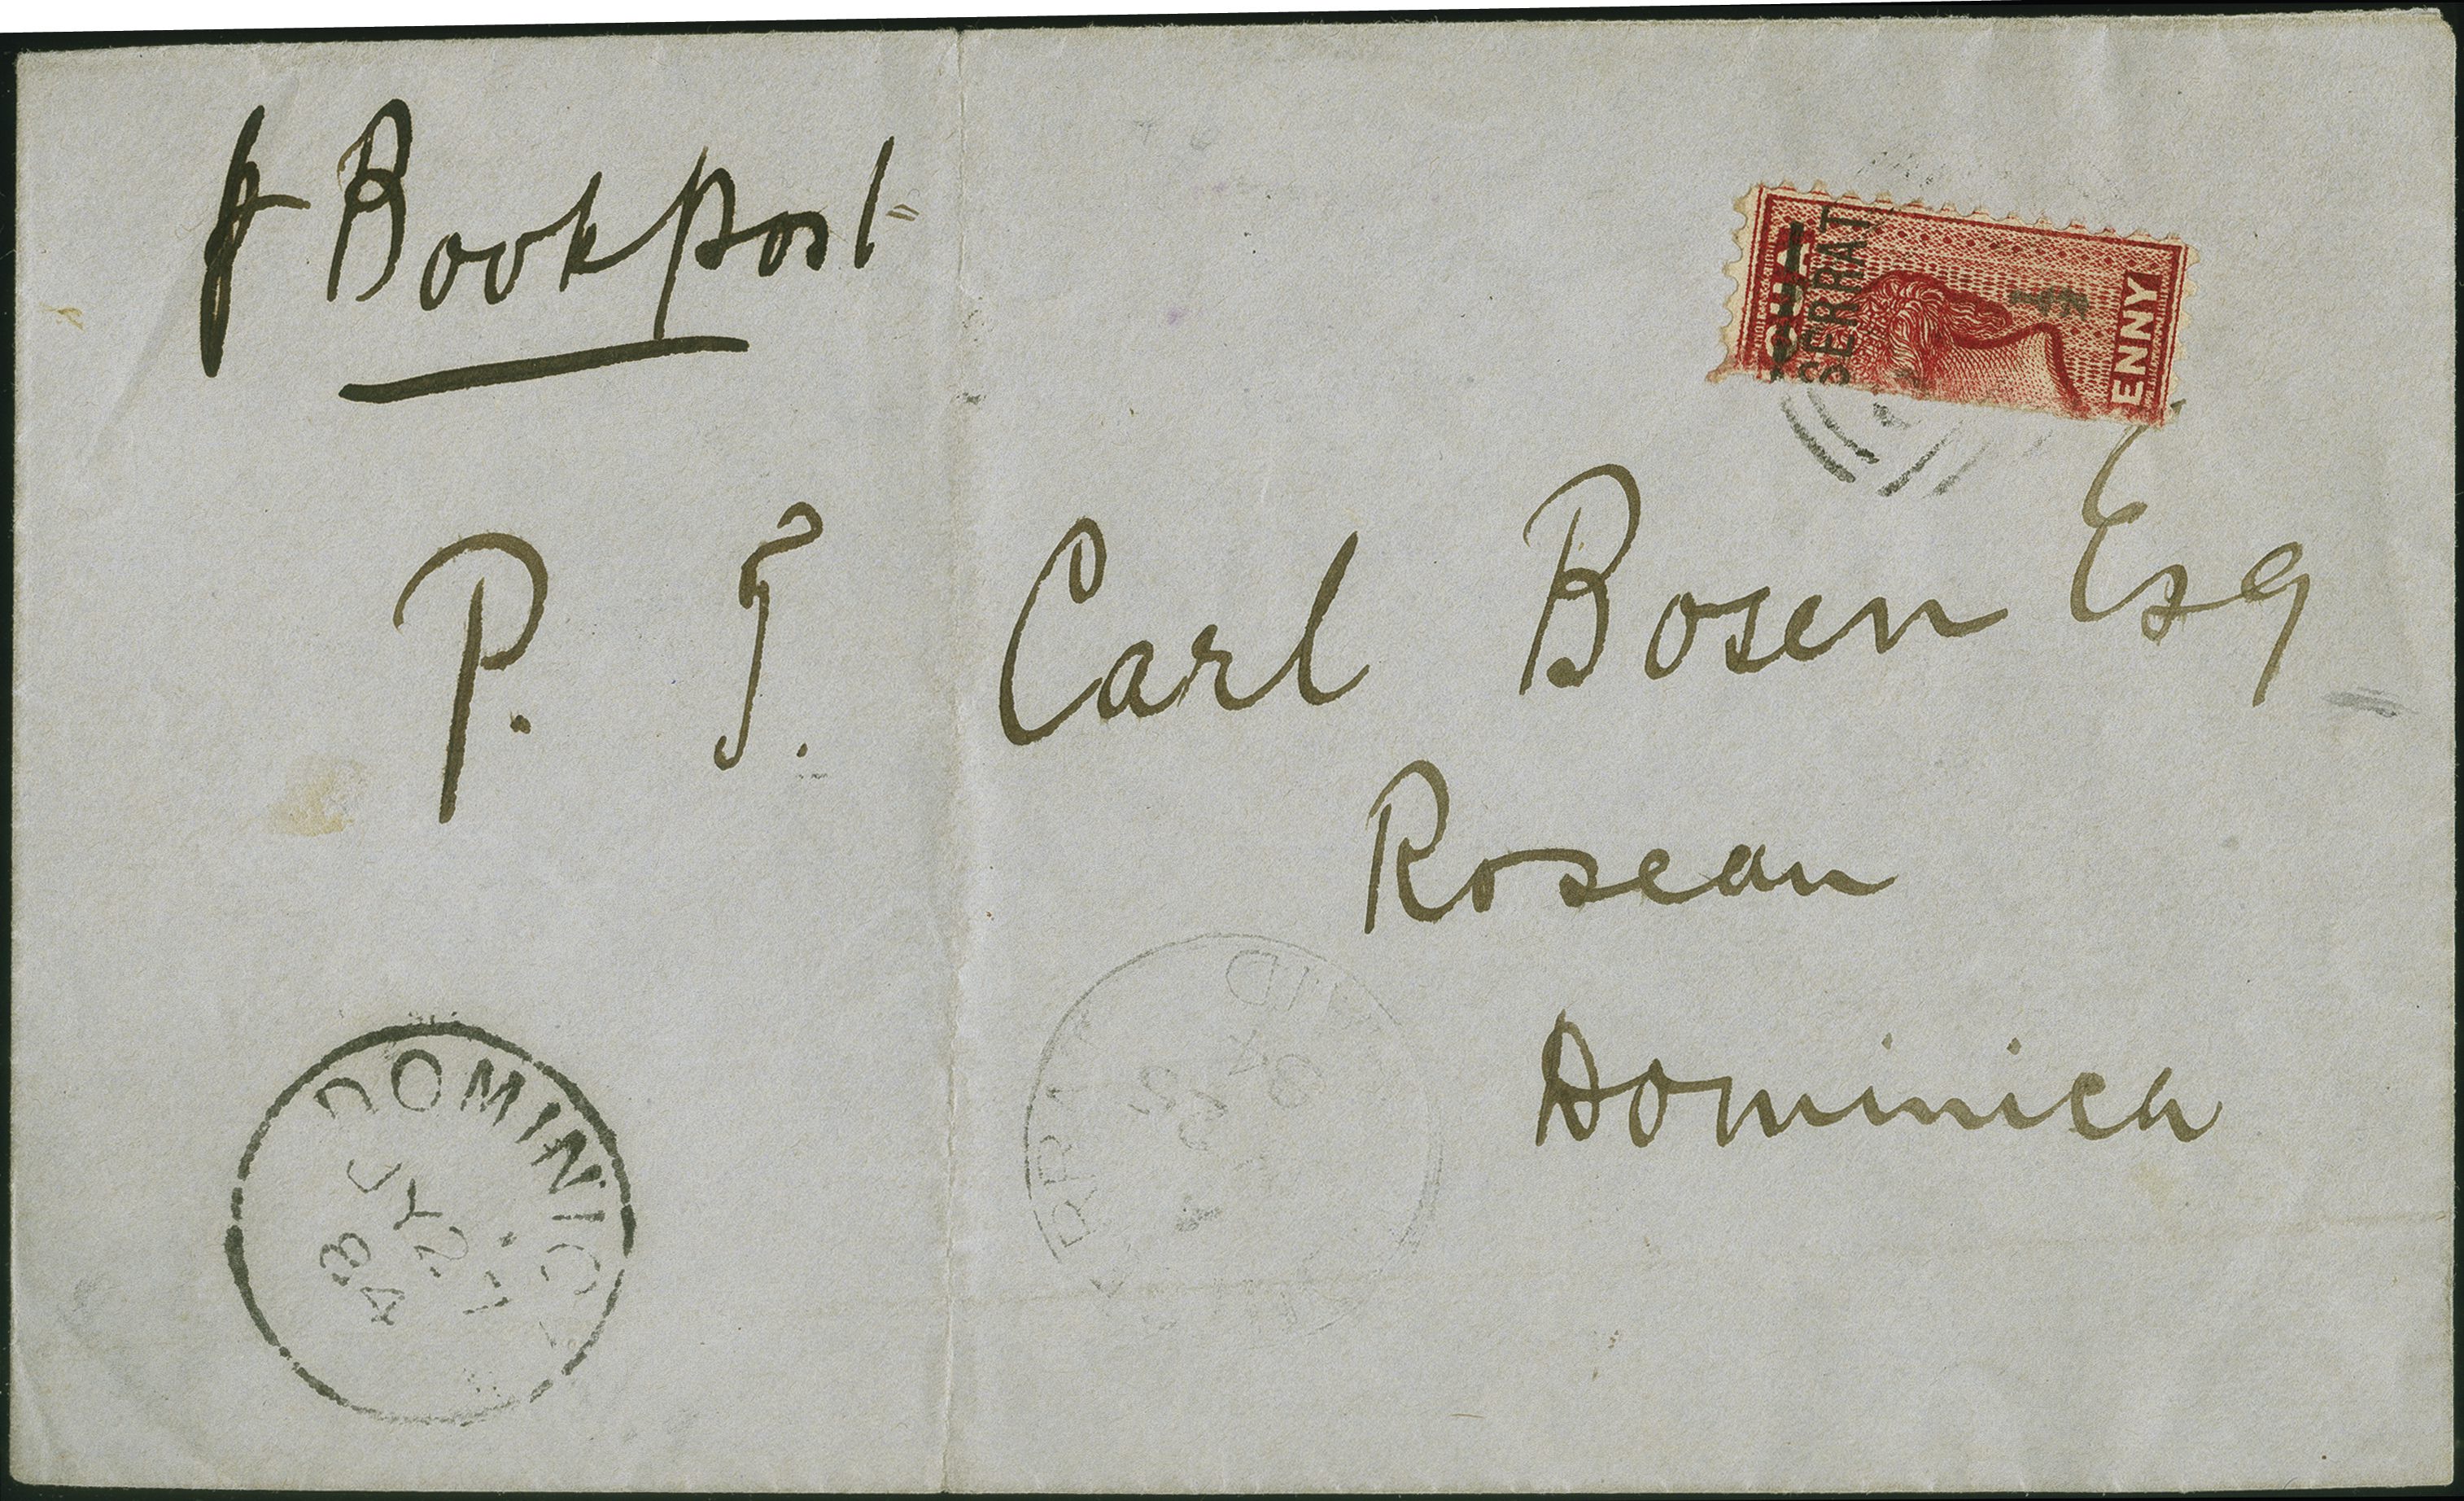 p Bookpost
SERRAT
1/2
ENNY
P. T. Carl Bosen Esq
Roseau
Dominica
DOMINIC
JY 2
84
RRAT
PAID